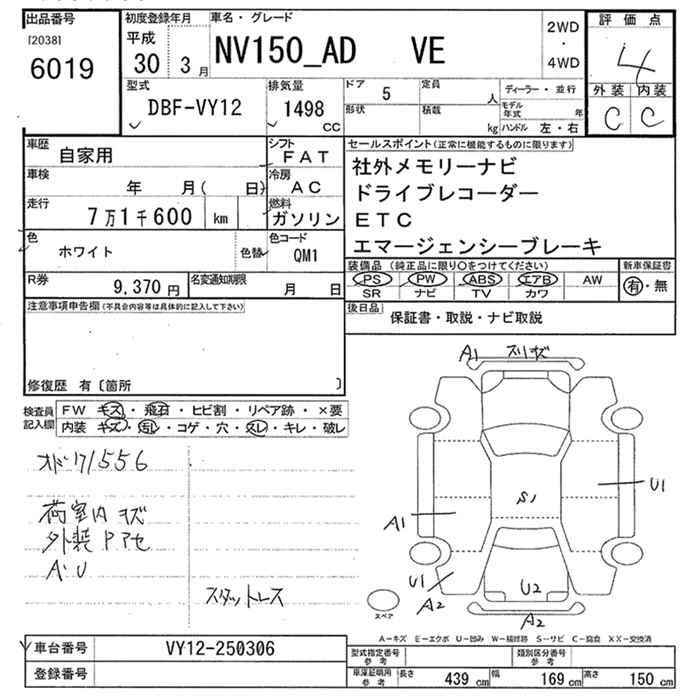 出品番号
[2038]
6019
初度登録年月
平成
30 3月
車名・グレード
NV150_AD VE
2WD
・
4WD
評価点
4
外装 内装
C C
型式
DBF-VY12
排気量
1498
CC
ドア
5
定員
人
形状
積載
kg
ディーラー・並行
モデル年式
年
ハンドル 左・右
車歴
自家用
シフト
FAT
車検
年 月( 日)
冷房
AC
走行
7万1千600 km
燃料
ガソリン
色
ホワイト
色替
色コード
QM1
セールスポイント(正常に機能するものに限ります)
社外メモリーナビ
ドライブレコーダー
ETC
エマージェンシーブレーキ
R券
9,370円
名変通知期限
月 日
装備品 (純正品に限り〇をつけてください)
新車保証書
PS PW ABS エアB AW
SR ナビ TV カワ
有・無
注意事項申告欄(不具合内容等は具体的に記入して下さい)
後日品
保証書・取説・ナビ取説
修復歴 有〔箇所 〕
検査員記入欄
FW キズ・飛石・ヒビ割・リペア跡・×要
内装 キズ・汚レ・コゲ・穴・スレ・キレ・破レ
オド71556
荷室内キズ
外装Pアセ
A・U
スタットレス
A1 スリキズ
S1
U1
A1
U1
A2
U2
A2
スペア
A-キズ E-エクボ U-凹み W-補修跡 S-サビ C-腐食 XX-交換済
車台番号
VY12-250306
登録番号
型式指定番号
参考
類別区分番号
参考
車庫証明用
参考
長さ 439 cm 幅 169 cm 高さ 150 cm